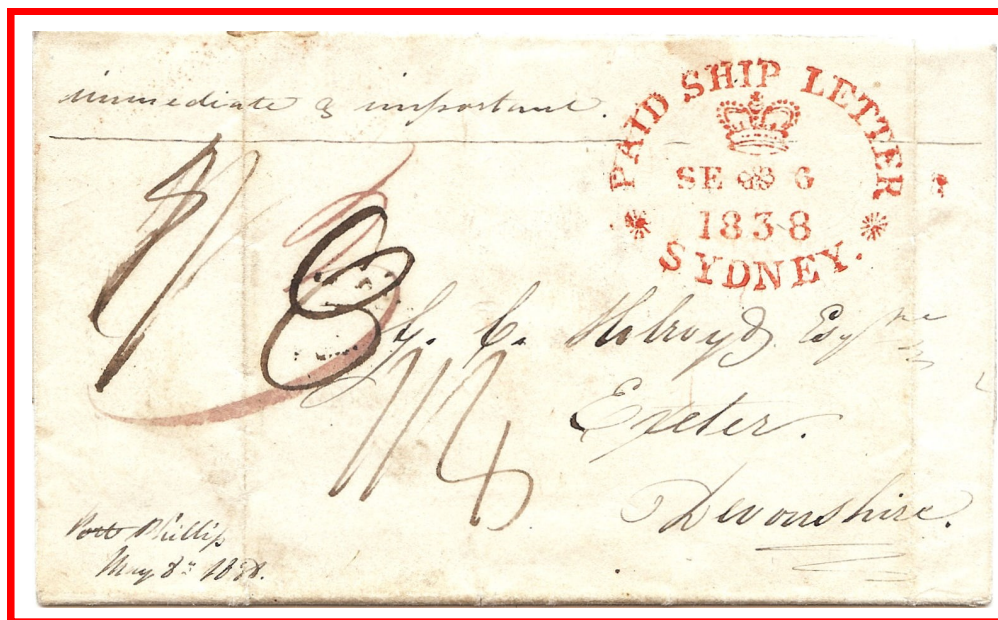 immediate & important.
PAID SHIP LETTER
SE 6
1838
SYDNEY.
Esqre
Exeter.
Devonshire.
Port Phillip
May 8th 1838.